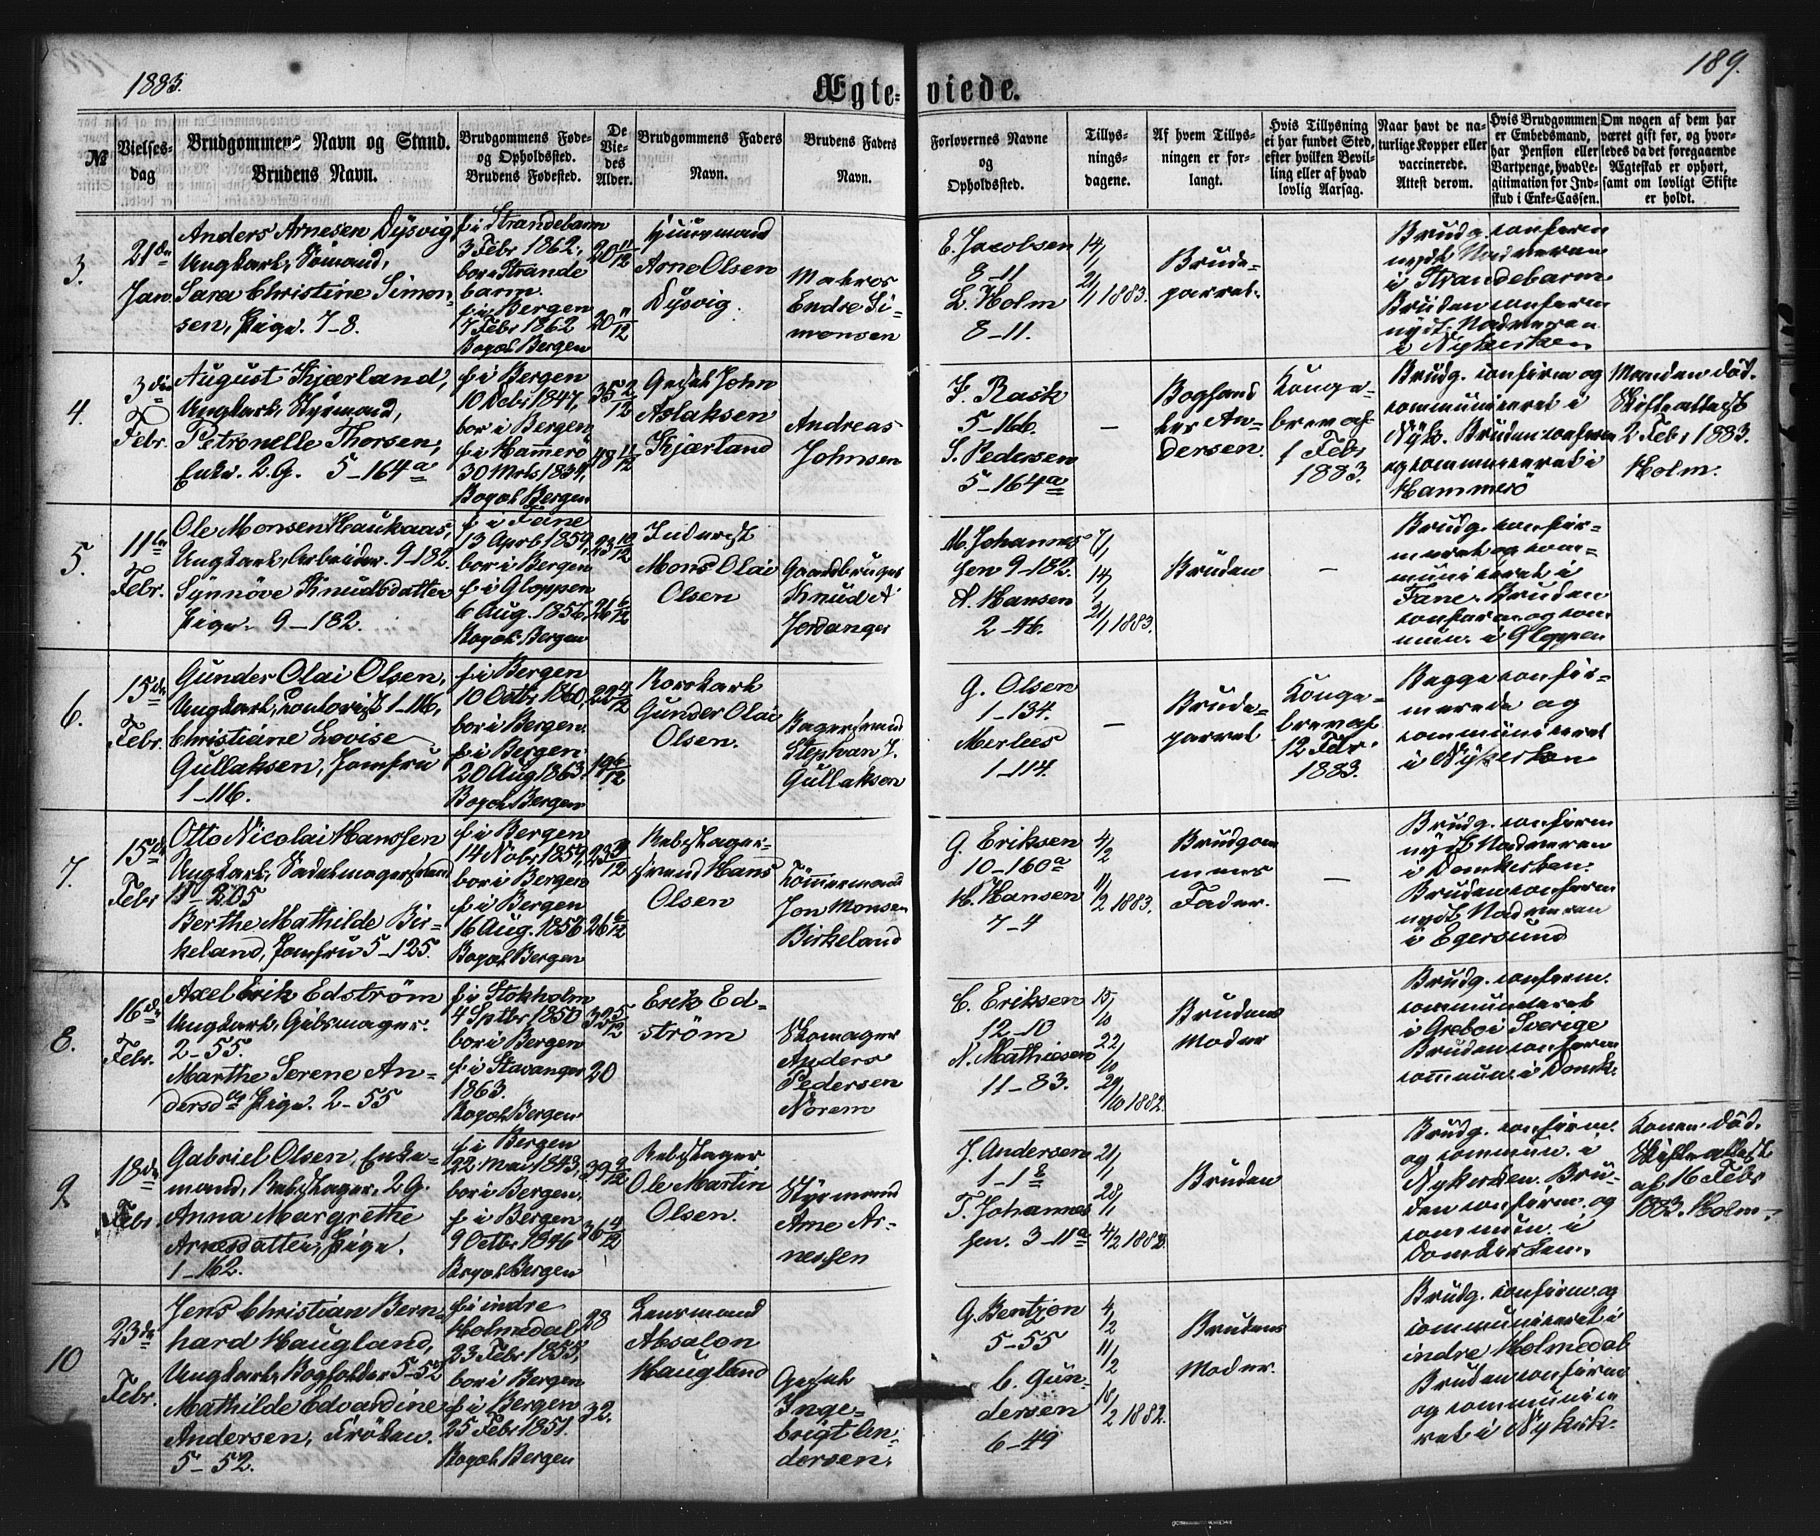 1883.
189.
Ægte-viede.
№
Vielses-
dag
Brudgommens Navn og Stand.
Brudens Navn.
Brudgommens Føde-
og Opholdssted.
Brudens Fødested.
De
Vie-
des
Alder.
Brudgommens Faders
Navn.
Brudens Faders
Navn.
Forlovernes Navne
og
Opholdssted.
Tillys-
nings-
dagene.
Af hvem Tillys-
ningen er for-
langt.
Hvis Tillysning
ei har fundet Sted,
efter hvilken Bevil-
ling eller af hvad
lovlig Aarsag.
Naar havt de na-
turlige Kopper eller
vaccinerede.
Attest derom.
Hvis Brudgommen
er Embedsmand,
har Pension eller
Vartpenge, hvad Le-
gitimation for Ind-
skud i Enke-Cassen.
Om nogen af dem har
været gift før, og hvor-
ledes da det foregaaende
Ægteskab er ophørt,
samt om lovligt Skifte
er holdt.
3.
21de
Jan.
Anders Arnesen Dysvig
Ungkarl, Sømand,
Sara Christine Simon-
sen, Pige. 7-8.
f i Strandebarm
3 Febr 1862,
bor i Strande
barm.
f i Bergen
7 Febr 1862
Bopæl Bergen
20 11/12
20 11/12
Huusmand
Arne Olsen
Dysvig.
Matros
Endre Si-
monsen
E. Jacobsen
8-11
L. Holm
8-11.
14/1
21/1 1883.
Brude-
parret.
Brudg. confirm
nydt Nadveren
i Strandebarm.
Bruden confirm
nydt Nadveren
i Nykirken
4.
3die
Febr.
August Kjærland,
Ungkarl, Styrmand,
Petronelle Thorsen,
Enke. 2. G. 5-164a
f i Bergen
10 Debr 1847,
bor i Bergen
f i Hammerö
30 Mrts 1834,
Bopæl Bergen
35 2/12
48 11/12
Gesel John
Aslaksen
Kjærland
Andreas
Johnsen
F. Rask
5-166.
S. Pedersen
5-164a
—
Boghand
ler An-
dersen.
Konge-
brev af
1 Febr
1883.
Brudg. confirm og
communiceret i
Nyk. Bruden confirm
og communiceret i
Hammerö
Manden död.
Skifteattest
2 Febr 1883.
Holm.
5.
11te
Febr.
Ole Monsen Haukaas,
Ungkarl, Arbeider. 9-182.
Synnöve Knudsdatter
Pige. 9-182.
f i Fane
13 Aprl 1859,
bor i Bergen
f i Gloppen
6 Aug. 1856,
Bopæl Bergen
23 10/12
26 6/12
Inderst
Mons Olai
Olsen
Gaardbruger
Knud A
Jordanger
M. Johannes
sen 9-182.
A. Hansen
2-46.
7/1
14/1
21/1 1883.
Bruden
—
Brudg. confir-
meret og com-
municeret i
Fane. Bruden
confirm. og com
mun. i Gloppen
6.
15de
Febr.
Gunder Olai Olsen,
Ungkarl, Contorist 1-116,
Christiane Lovise
Gullaksen, Jomfru
1-116.
f i Bergen
10 Octbr 1860,
bor i Bergen.
f i Bergen
20 Aug. 1863.
Bopæl Bergen
22 4/12
19 6/12
Rorskarl
Gunder Olai
Olsen.
Bagersvend
Stephan J.
Gullaksen
G. Olsen
1-134.
Merlees
1-114.
—
Brude-
parret
Konge-
brev af
12 Febr.
1883.
Begge confir-
merede og
communiceret
i Nykirken
7.
15de
Febr
Otto Nicolai Hanssen
Ungkarl, Sadelmagersvend
15-205
Berthe Mathilde Bir-
keland, Jomfru 5-125.
f i Bergen
14 Nobr 1859,
bor i Bergen
f i Bergen
16 Aug. 1856
Bopæl Bergen
23 3/12
26 6/12
Rebslager-
svend Hans
Olsen
Tömmermand
Jon Monsen
Birkeland
G. Eriksen
10-160a
H. Hansen
7-4
4/2
11/2 1883.
Brudgom
mens
Fader.
—
Brudg. confirm
nydt Nadveren
i Domkirken.
Bruden confirm
nydt Nadveren
i Egersund
8.
16de
Febr.
Axel Erik Edström
Ungkarl, Gibsmager.
2-55.
Marthe Serene An-
dersdag Pige. 2-55
f i Stokholm
4 Septbr 1850
bor i Bergen
f i Stavanger
1863.
Bopæl Bergen
32 5/12
20
Erik Ed-
ström
Skomager
Anders
Pedersen
Norem
C. Eriksen
12-10
N. Mathiesen
11-83.
15/10
22/10
29/10 1882.
Brudens
Moder
Brudg. confirm.
communiceret
i Örebro i Sverige
Bruden confirm
commun. i Domk.
9.
18de
Febr.
Gabriel Olsen, Enke-
mand, Rebslager, 2 G.
Anna Margrethe
Arnesdatter, Pige.
1-162.
f i Bergen
22 Mai 1843,
bor i Bergen,
f i Bergen
9 Octbr 1846
Bopæl Bergen
39 9/12
36 4/12
Rebslager
Ole Martin
Olsen.
Styrmand
Arne Ar-
nessen
J. Andersen
1-1
T. Johannes
sen. 3-11a
21/1
28/1
4/2 1883.
Bruden
Brudg. confirm.
og commun. i
Nykirken. Bru-
den confirm. og
commun. i
Domkirken.
Konen död.
Skifteattest
af 16 Febr
1883. Holm.
10
23de
Febr.
Jens Christian Bern
hard Haugland,
Ungkarl, Bogholder 5-52
Mathilde Edvardine
Andersen, Fröken.
5-52.
f i indre
Holmedal
23 Febr 1855,
bor i Bergen
f i Bergen
25 Febr 1851.
Bopæl Bergen
28
32.
Lensmand
Absalon
Haugland
Gesel
Inge-
brigt An-
dersen.
G. Bentzon
5-55
C. Gun-
dersen
6-49
4/2
11/2
18/2 1882.
Brudens
Moder.
Brudg. confirm. og
communiceret i
indre Holmedal
Bruden confirm
og communice
ret i Nykirk.